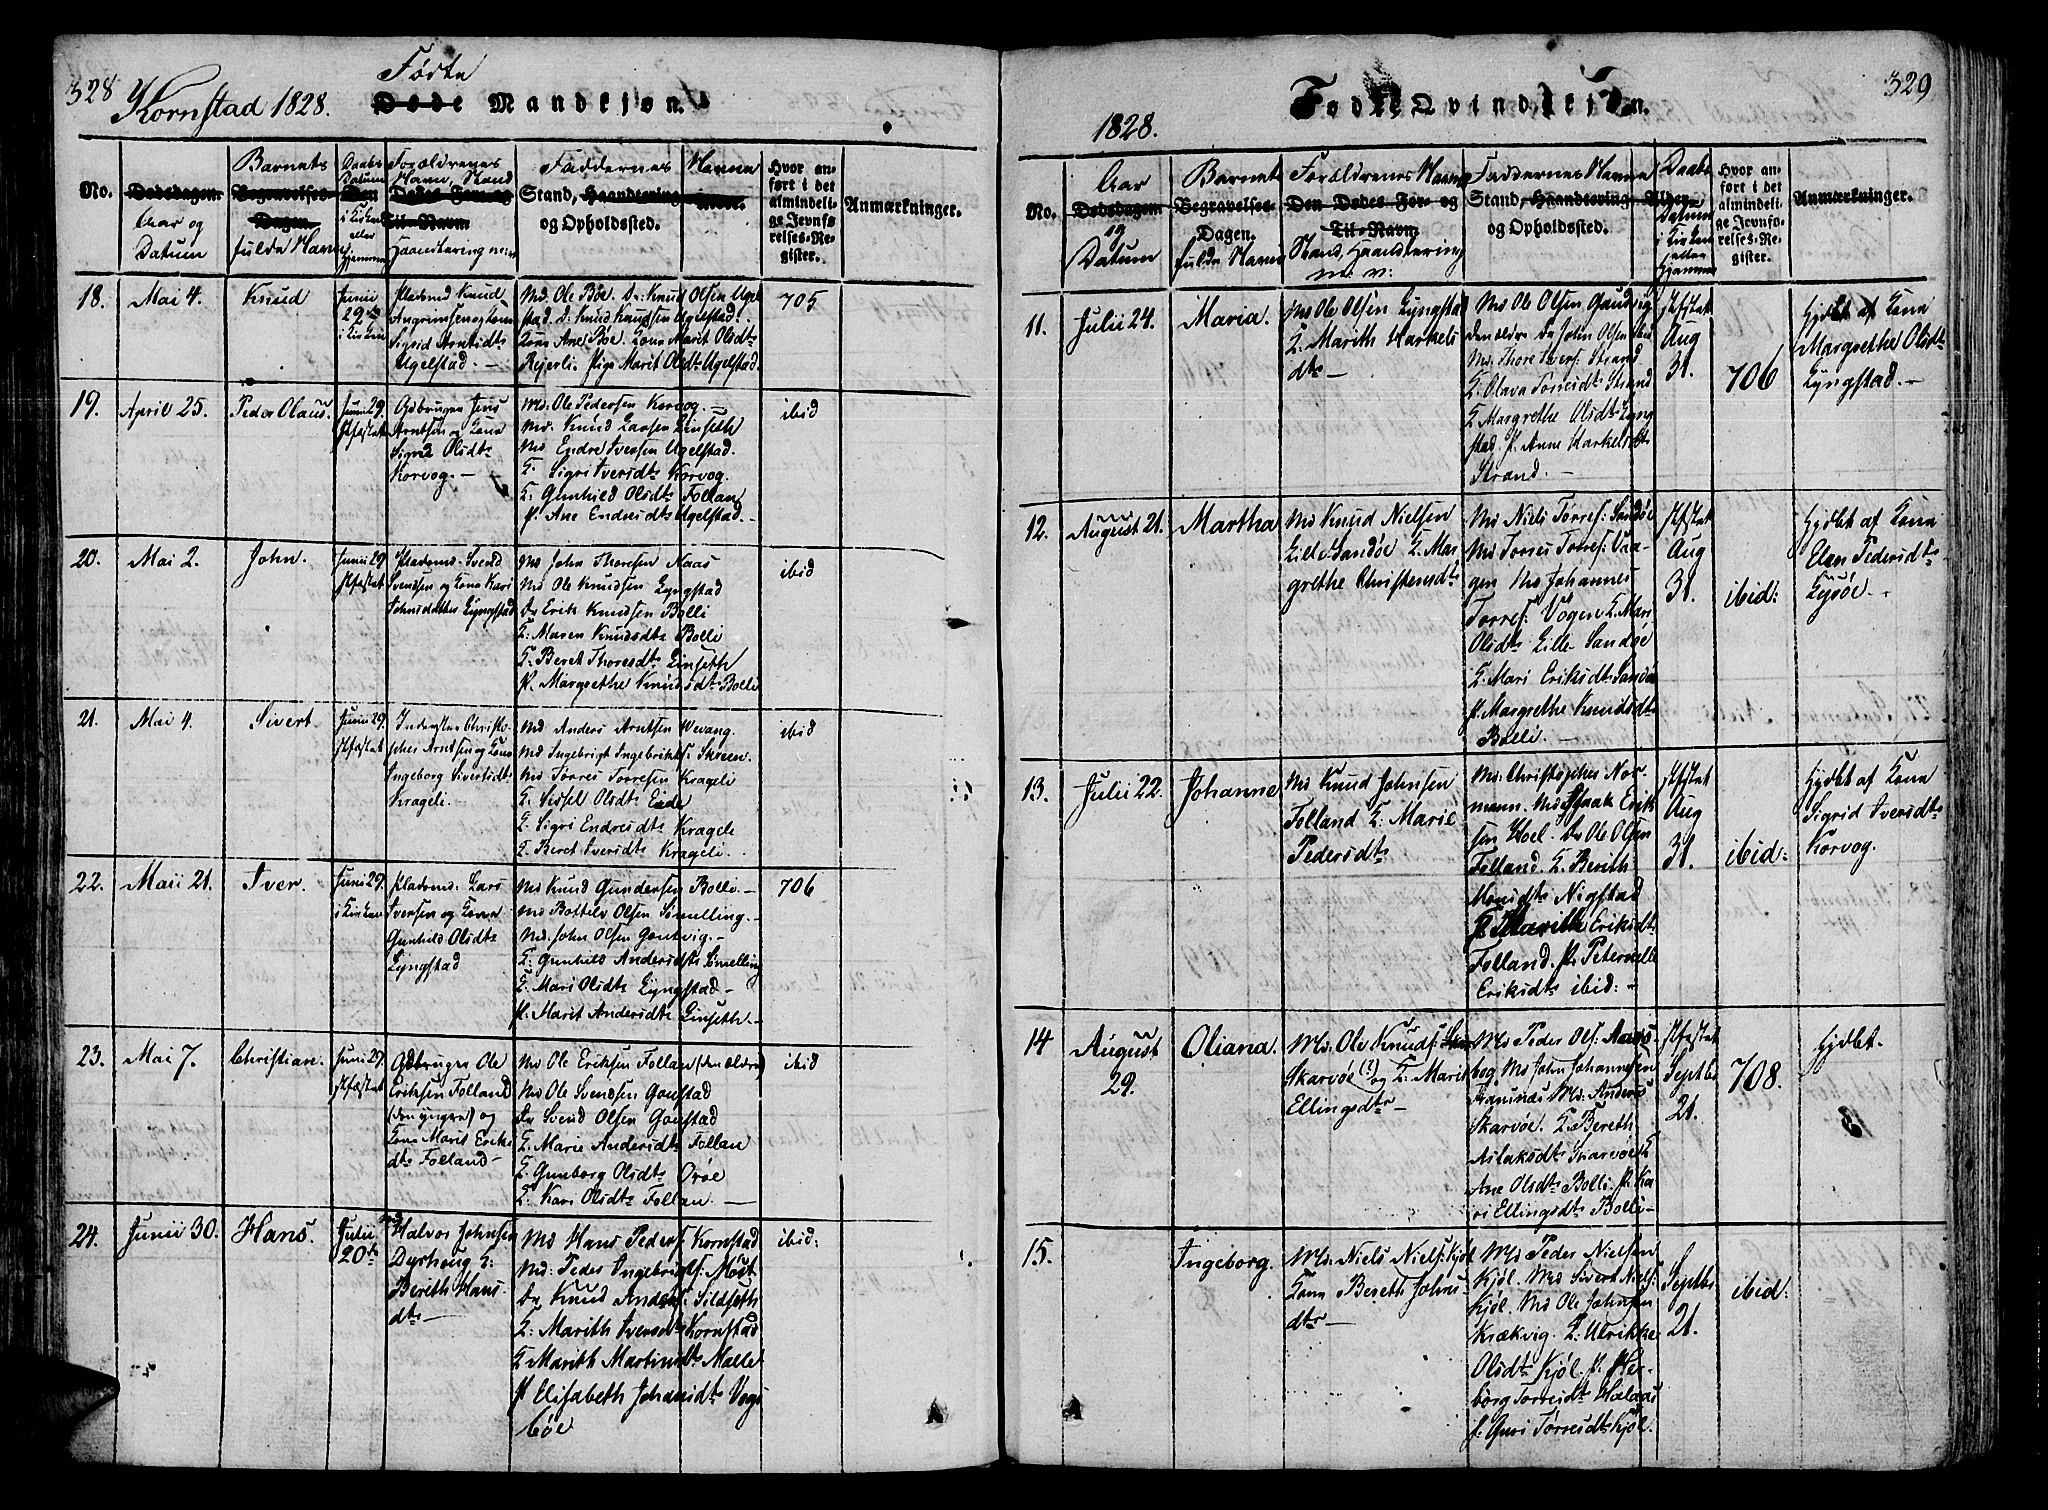 328
Kornstad 1828.
Fødte
Døde Mandkjøn.
No.
Dødsdagen
Aar og
Datum
Barnets
Begravelses-
Dagen.
fulde Navn
Daabs
Datum
Den
i Kirken
eller
hjemme
Forældrenes
Navn, Stand
Dødes For- og
Til-Navn
Haandtering m:v:
Faddernes Navne
Stand, Haandtering
og Opholdssted.
Alder.
Hvor an-
ført i det
almindeli-
ge Jevnfø-
relses-Re-
gister.
Anmærkninger.
18.
Mai 4.
Knud
Junii
29
i Kirken
Pladsmd Knud
Sigrid Arntsdtr
Ugelstad. -
Md. Ole Bøe. Dr: Knud Olsen Ugel
stad. D: Knud Knudsen Ugelstad.
Kone Ane Bøe. Kone Marit Olsdtr
Rejerli. Pige Marit Olsdtr Ugelstad.
705
19.
April 25.
Peder Olaus.
Junii 29.
Gdbruger Jens
Arntsen og Kone
Signe Olsdtr
Korvog. -
Md. Ole Pedersen Korvog. -
Md. Knud Larsen Linseth
Md Endre Iversen Ugelstad.
K. Sigri Iversdtr Korvog.
K: Gunhild Olsdtr Follan
P. Ane Endresdtr Ugelstad. -
ibid
20.
Mai 2.
John.
Junii 29
Pladsmd. Svend
Svendsen og Kone Kari
Johnsdatter Lyngstad
Md John Thoresen Naas
Md Ole Knudsen Lyngstad
Dr Erik Knudsen Bolli
K: Maren Knudsdtr Bolli
K. Beret Thoresdtr Linseth
P. Margrethe Knudsdtr Bolli
ibid
21.
Mai 4.
Sivert.
Junii 29.
Inderster Christo-
pher Arntsen og Kone
Ingeborg Sivertsdtr
Krageli. -
Md Anders Arntsen Wevang.
Md Ingebrigt Ingebrigts: Skreen.
Md Tørres Torresen Krageli
K. Sissel Olsdtr Eide
K. Sigri Endresdtr Krageli
K Beret Iversdtr Krageli.
ibid
22.
Maii 21.
Iver.
Junii 29.
i Kirken
Pladsmd: Lars
Iversen og Kone
Gunhild Olsdtr
Lyngstad
Md Knud Gundersen Bolli -
Md Bottelv Olsen Smelling. -
Md. John Olsen Gautvig. -
K: Gunhild Andersdtr Smelling
K. Mari Olsdtr Lyngstad -
P. Marit Andersdtr Linseth. -
706
23.
Mai 7.
Christian.
Junii 29.
Gdbruger Ole
Eriksen Folland
(den yngre) og
Kone Marit Eriks
dtr Folland -
Md Ole Eriksen Follan (den ældre)
Md Ole Svendsen Gaustad
Dr Svend Olsen Gaustad
K. Marie Andersdtr Follan
K Gunborg Olsdtr Orøe
K. Kari Olsdtr Follan. -
ibid
24.
Junii 30.
Hans.
Julii
20de
Halvor Johnsen
Dyrhoug K:
Bereth Hans
dtr -
Md Hans Peders: Kornstad
Md: Peder Ingebrigts: Møst
Dr Knud Anders: Sildseth
K: Marith Iversdtr Kornstad
K Marith Martinsdtr Malle
P Elisabeth Johansdtr Vogs
bøe
ibid:
329
1828.
Fødte Qvindekjøn.
No.
Aar
Dødsdagen
og
Datum
Barnets
Begravelses-
Dagen.
fulde Navn
Forældrenes Navne
Den Dødes For- og
Til-Navn
Stand, Haandtering
m. v:
Faddernes Navne
Stand, Haandtering
og Opholdssted.
Daabs
Alder
Datum
i Kirken
eller
hjemme
Hvor an-
ført i det
almindeli-
ge Jevnfø-
relses-Re-
gister.
Anmærkninger.
11.
Julii 24.
Maria.
Md Ole Olsen Lyngstad
K. Marith Harkels
dtr -
Md Ole Olsen Gautvig
den ældre Dr John Olsen ibid
Md. Thore Ivers: Strand
K. Olava Torresdtr Strand
K Margrethe Olsdtr Lyng
stad P. Anne Harkelsdtr
Strand. -
Aug
31.
706
hjdbt af Kone
Margrethe Olsdtr
Lyngstad. -
12.
August 21.
Martha
Md Knud Nielsen
Lille Sandøe K. Mar
grethe Christensdtr
Md Niels Tørres: Sandøe
Md Torres Torres: Vaa-
gen Md Johannes
Torres: Vogen K. Mari
Olsdtr Lille Sandøe
K. Mari Eriksdtr Sandø
P. Margrethe Knudsdtr
Bolli. -
Aug
31.
ibid:
hjdbt af Kone
Elen Pedersdtr
Lysøe. -
13.
Julii 22.
Johanne
Md Knud Johnsen
Folland K. Marie
Pedersdtr
Md. Christopher Nor-
mann. Md Isaak Erik
sen Hoel. Dr Ole Olsen
Folland. K. Berith
Monsdtr Nigstad
P Marith Eriksdtr
Folland. P. Peternelle
Eriksdtr ibid: -
Aug
31.
ibid:
hjdbt af Kone
Sigrid Iversdtr
Korvog.
14
August
29.
Oliana.
Md. Ole Knuds:
Skarvøe (?) og K. Marit
Ellingsdtr -
Md. Peder Ols: Aars-
bog Md John Johannesen
Framnæs Md. Anders
Skarvøe. K. Bereth
Aslaksdtr Skarvøe K
Ane Olsdtr Bolli. P. Ka
ri Ellingsdtr Bolli -
Septbr
21.
708.
hjdbt.
15.
Ingeborg.
Md. Niels Niels: Kjøl
Kone Bereth Johns
dtr -
Md. Peder Nielsen
Kjøl. Md Sivert Niels:
Kjøl. Md Ole Johnsen
Krækvig. K: Ulrikke
Olsdtr Kjøl. P. Her-
borg Torresdtr Hælaas
P. Guri Tørresdtr Kjøl.
Septbr
21.
ibid: